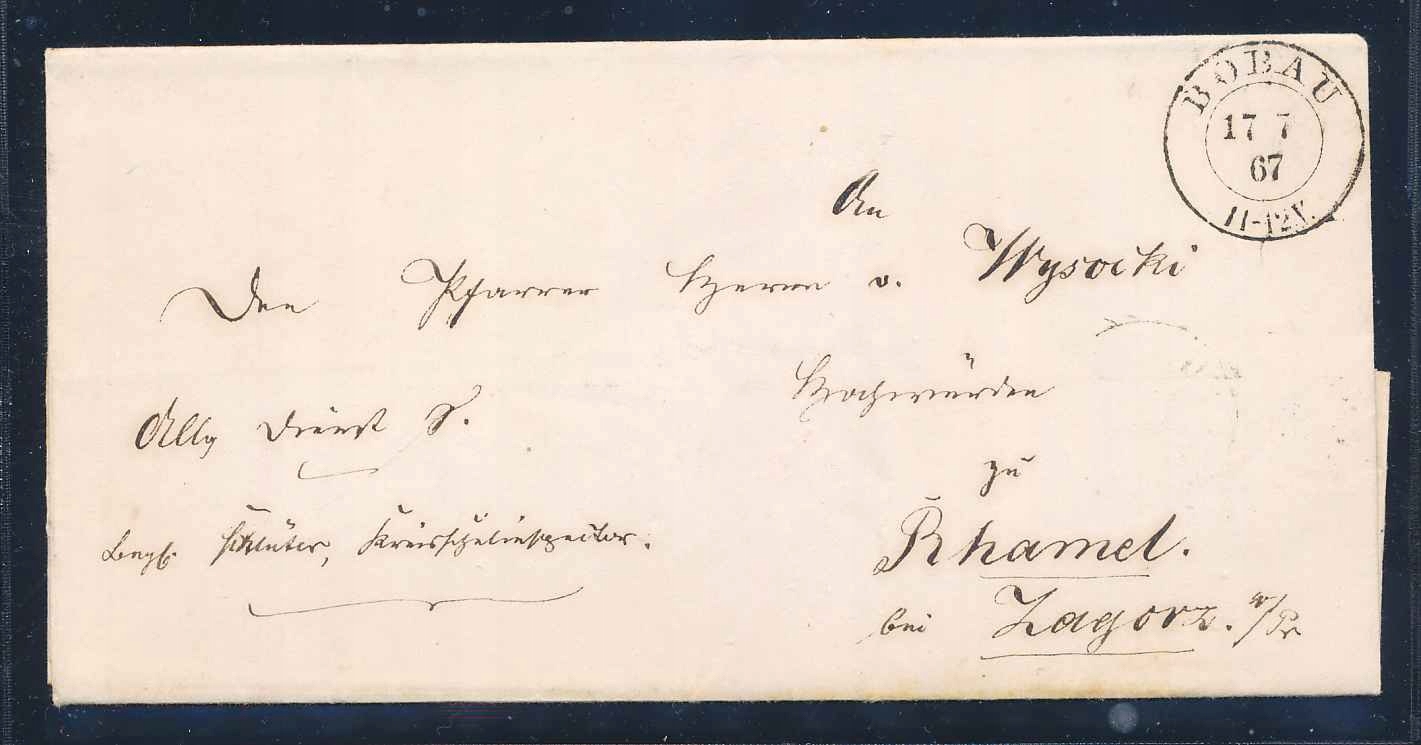 BOBAU
17 7
67
11-12V.
An
Den Pfarrer Herrn v. Wysocki
Hochwürden
zu
Rhamel.
bei Zagorz. W/Pr
Allg Dienst S.
Schlüter, Kreisschulinspector.